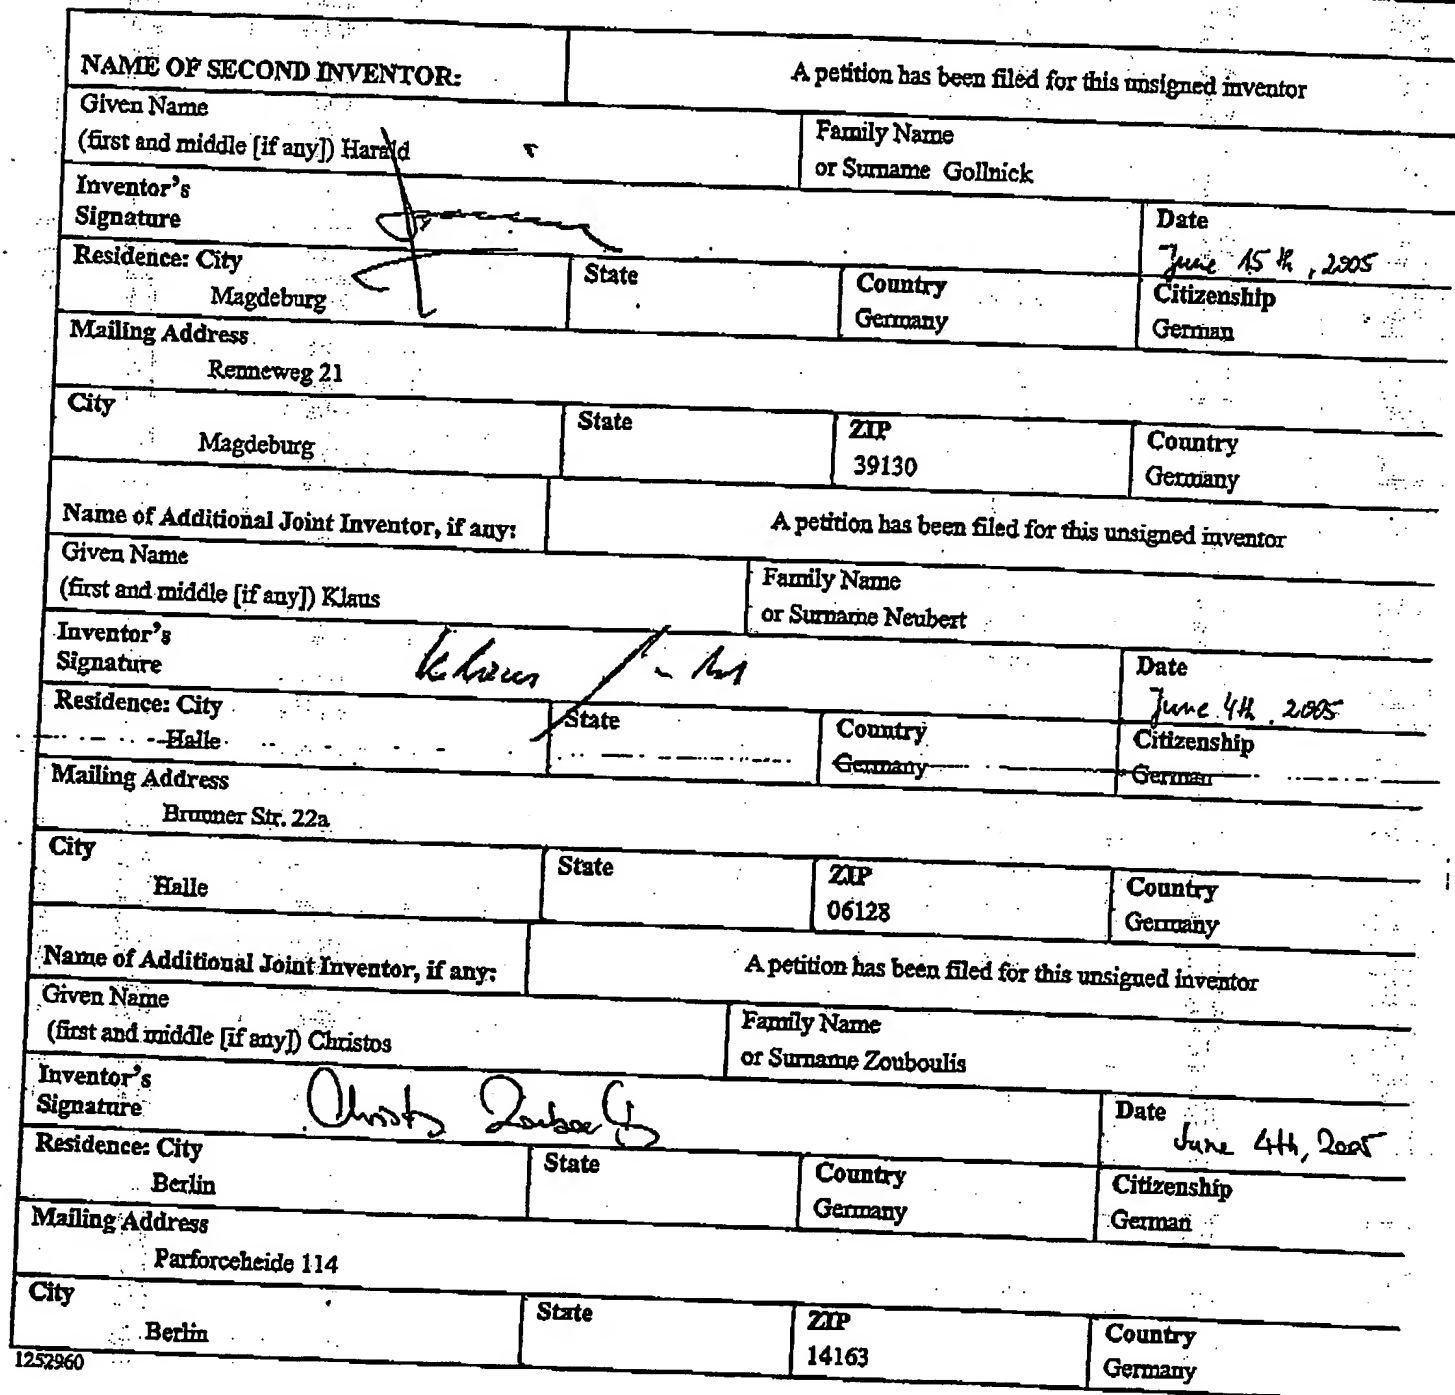 NAME OF SECOND INVENTOR: A petition has been filed for this unsigned inventor
Given Name
(first and middle [if any]) Harald
Family Name
or Surname Gollnick
Inventor's
Signature
Date
June 15th, 2005
Residence: City
Magdeburg
State
Country
Germany
Citizenship
German
Mailing Address
Renneweg 21
City
Magdeburg
State
ZIP
39130
Country
Germany
Name of Additional Joint Inventor, if any: A petition has been filed for this unsigned inventor
Given Name
(first and middle [if any]) Klaus
Family Name
or Surname Neubert
Inventor's
Signature
Klaus
Date
June 4th, 2005
Residence: City
Halle
State
Country
Germany
Citizenship
German
Mailing Address
Brunner Str. 22a
City
Halle
State
ZIP
06128
Country
Germany
Name of Additional Joint Inventor, if any: A petition has been filed for this unsigned inventor
Given Name
(first and middle [if any]) Christos
Family Name
or Surname Zouboulis
Inventor's
Signature
Christos Zouboulis
Date
June 4th, 2005
Residence: City
Berlin
State
Country
Germany
Citizenship
German
Mailing Address
Parforceheide 114
City
Berlin
State
ZIP
14163
Country
Germany
1252960